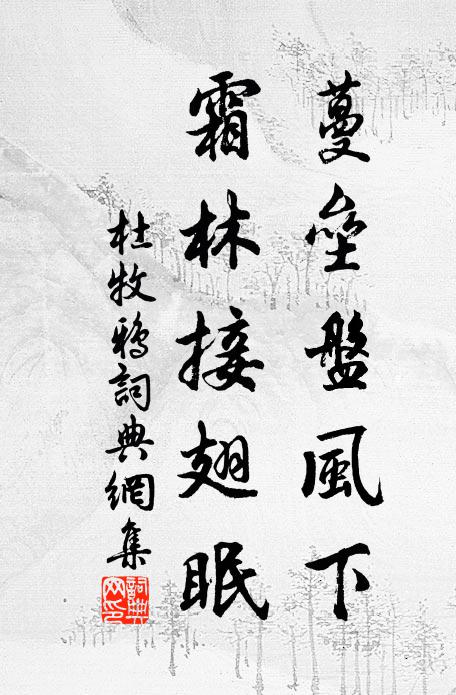 蔓壘盤風下
霜林接翅眠
杜牧鴉詞典網集